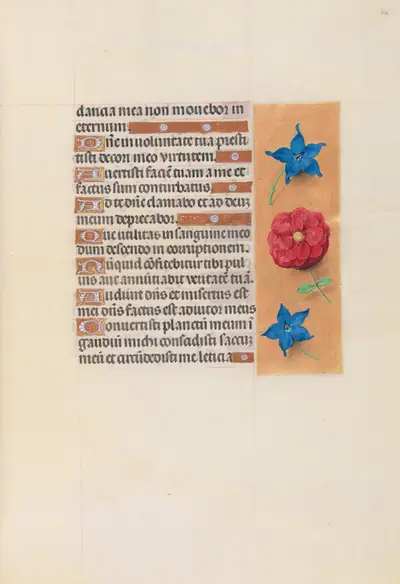 dancia mea non movebor in
eternum.
Dñe in voluntate tua presti
tisti decori meo virtutem.
Avertisti faciē tuam a me et
factus sum conturbatus
Ad te dñe clamabo et ad deuȝ
meum deprecabor.
Que utilitas in sanguine meo
dum descendo in corruptionem.
Nūquid cōfitebitur tibi pul
vis aut annūtiabit veritatē tuā.
Audivit dñs et misertus est
mei dñs factus est adiutor meus
Convertisti planctū meum ī
gaudiū michi conscidisti saccuȝ
meū et circūdedisti me leticia